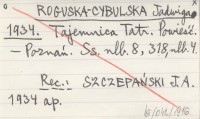 ROGUSKA-CYBULSKA Jadwiga
1934. Tajemnica Tatr. Powieść.
— Poznań. Ss. nlb. 8, 318, nlb. 4.
Rec.: SZCZEPAŃSKI J.A.
1934 ap.